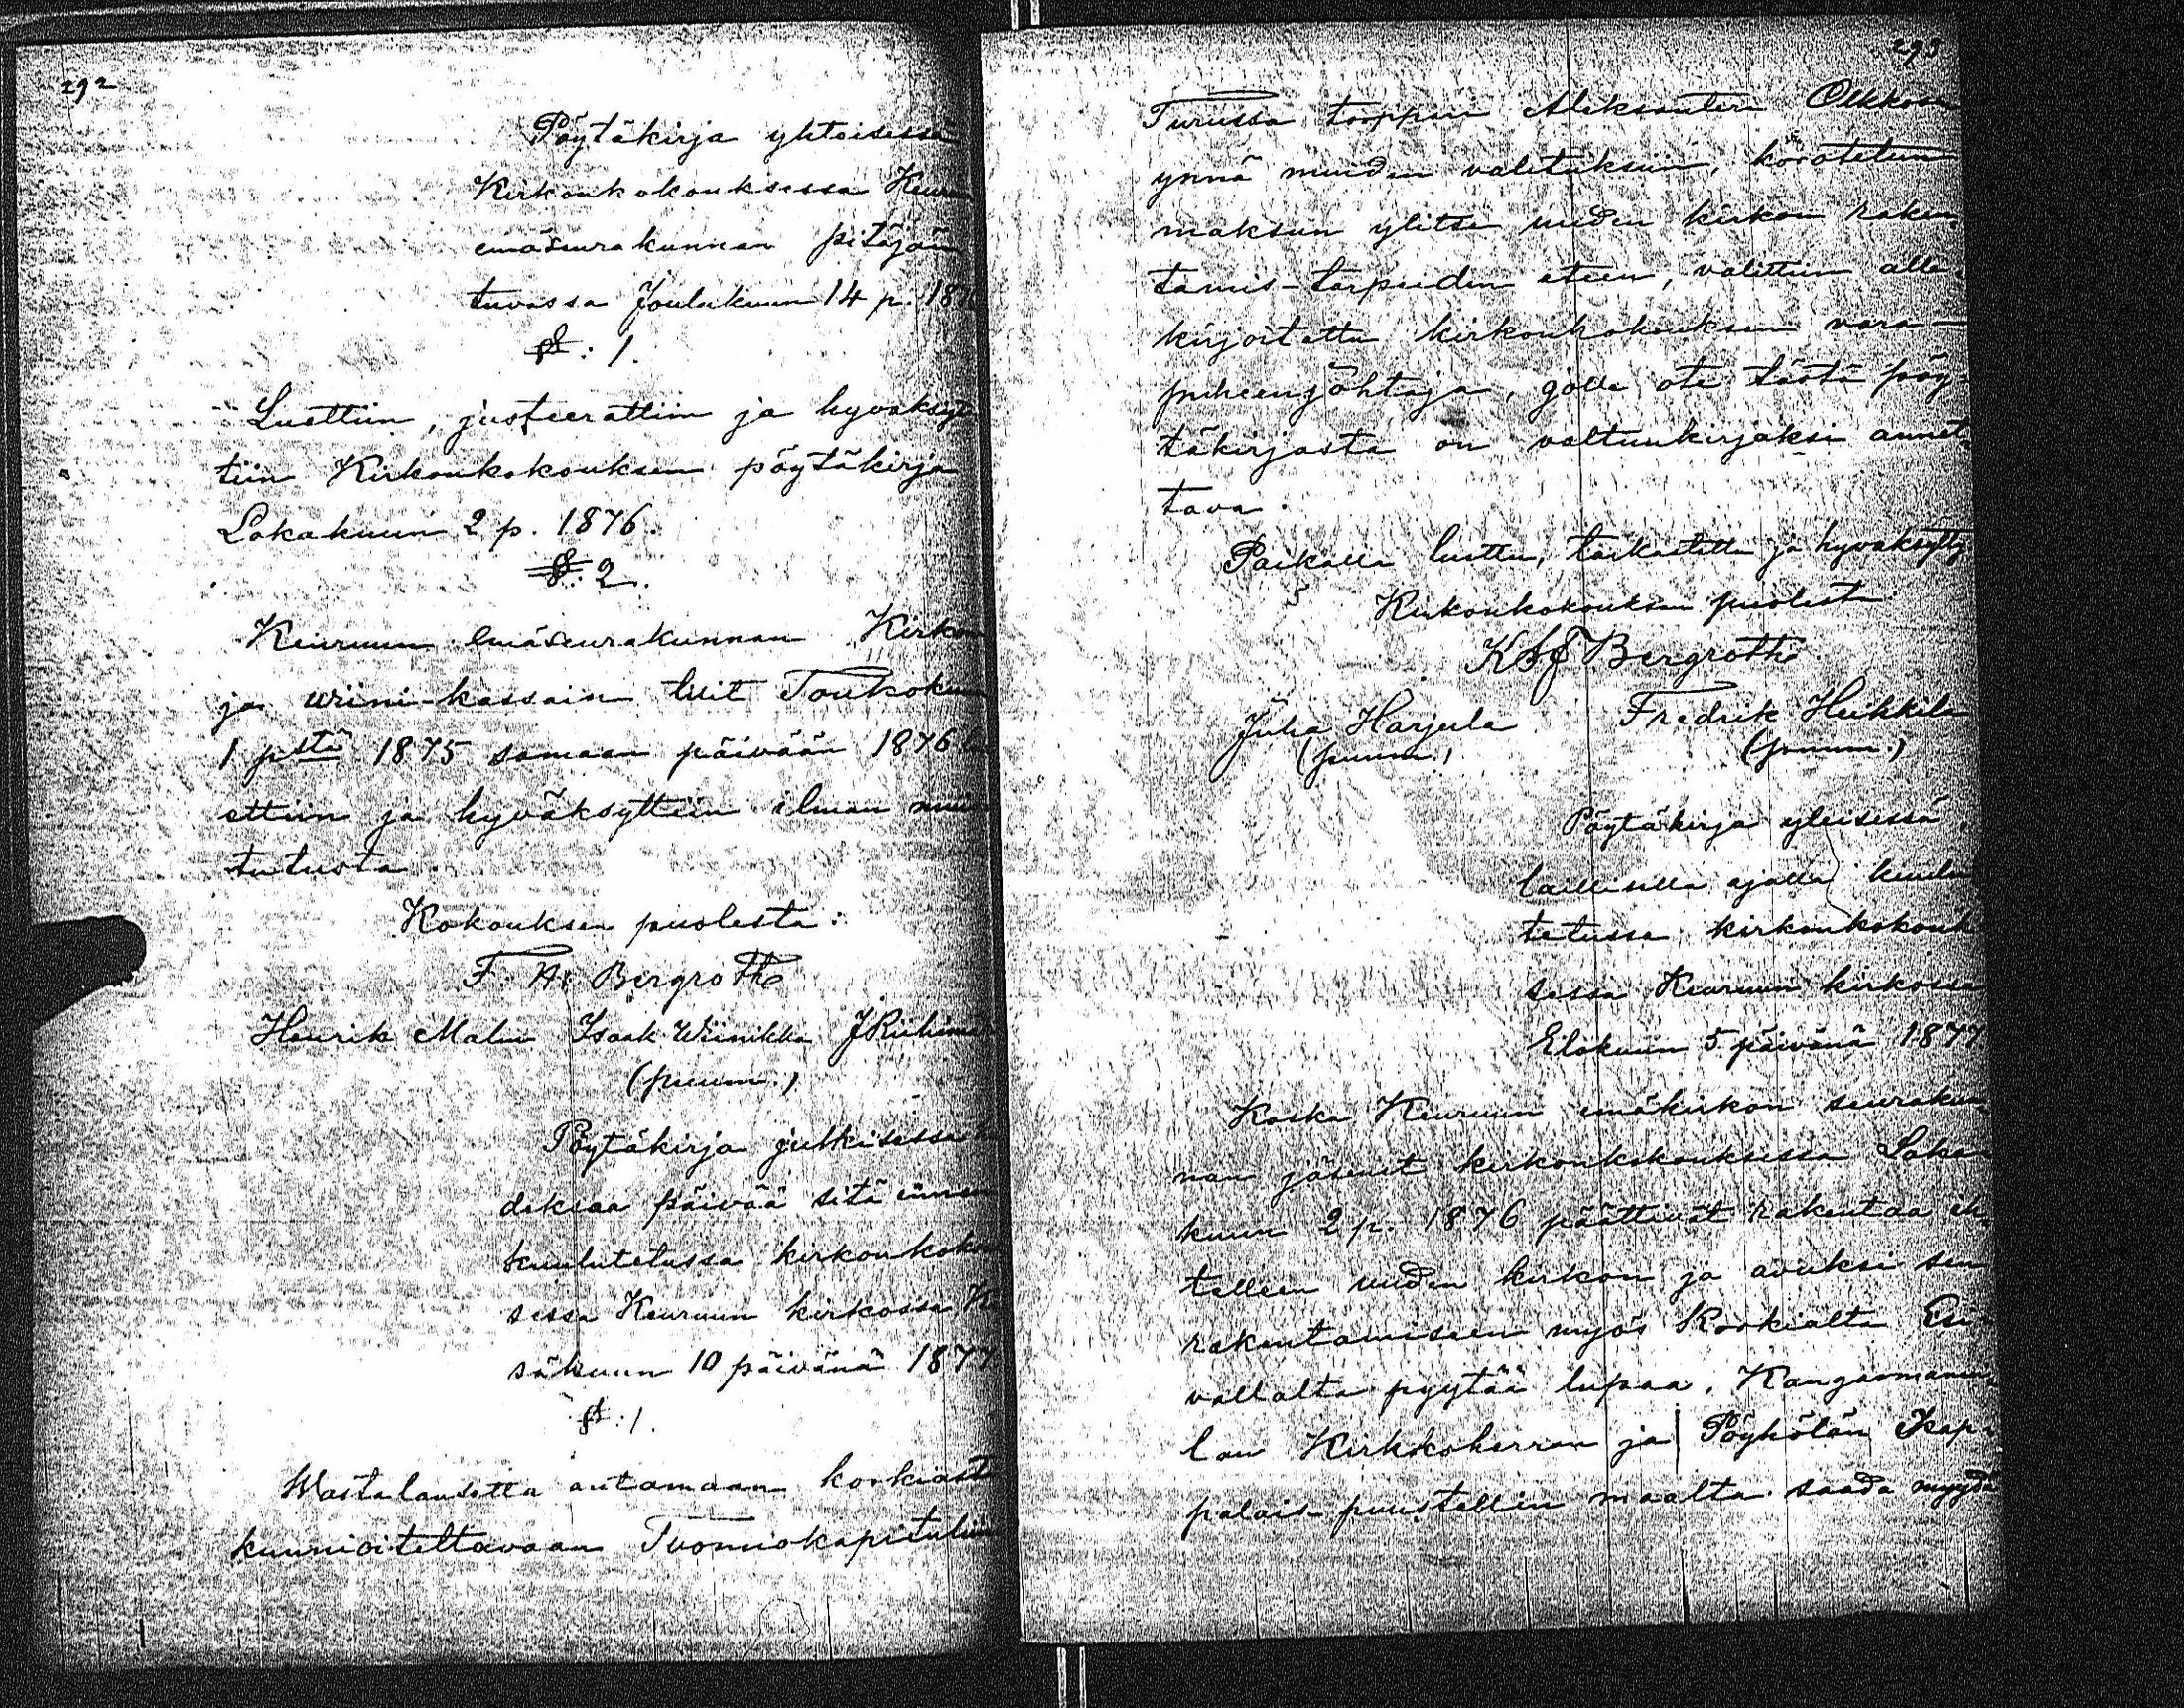 292
Pöytäkirja yhteisessä
Kirkonkokouksessa Keuruun
emäseurakunnan pitäjän
tuvassa Joulukuun 14 p. 187
§: 1.
Luettiin, justeerattiin ja hyväksyt
tiin Kirkonkokouksen pöytäkirja
Lokakuun 2 p. 1876.
§: 2.
Keuruun emäseurakunnan Kirkon
ja wiini-kassain tilit Toukokuun
1 pstä 1875 samaan päivään 1876
ettiin ja hyväksyttiin ilman mui
tutusta.
Kokouksen puolesta:
F. H. Bergroth
Henrik Malin Isaak Wiinikka J Riihim
(puum.)
Pöytäkirja julkisessa
deksaa päivää sitä ennen
kuulutetussa kirkonkokou
sessa Keuruun kirkossa K
säkuun 10 päivänä 1877
§: 1.
Wastalausetta antamaan korkiast
kunnioitettavaan Tuomiokapituliin
293
Turussa torppari Aleksanteri Olkkosen
ynnä muiden valituksiin, korotetun
maksun ylitse uuden kirkon raken-
tamis-tarpeiden eteen, valittiin alle-
kirjoitettu kirkonkokouksen vara-
puheenjohtaja, jolle ote tästä pöy-
täkirjasta on valtuukirjaksi annet-
tava.
Paikalla luettu, tarkastettu ja hyväksytty
Kirkonkokouksen puolesta:
K S J Bergroth
Juha Harjula Fredrik Heikkilä
(puum.) (puum.)
Pöytäkirja yleisessä,
laillisella ajalla kuulu
tetussa kirkonkokouk
sessa Keuruun kirkossa
Elokuun 5 päivänä 1877
Koska Keuruun emäkirkon seurakun-
nan jäsenet kirkonkokouksessa Loka-
kuun 2 p. 1876 päättivät rakentaa it-
telleen uuden kirkon ja avuksi sen
rakentamiseen myös Korkialta Esi-
vallalta pyytää lupaa, Kangasmanni-
lan Kirkkoherran ja Pöyhölän Kap-
palais-puustellin maalta saada myydä